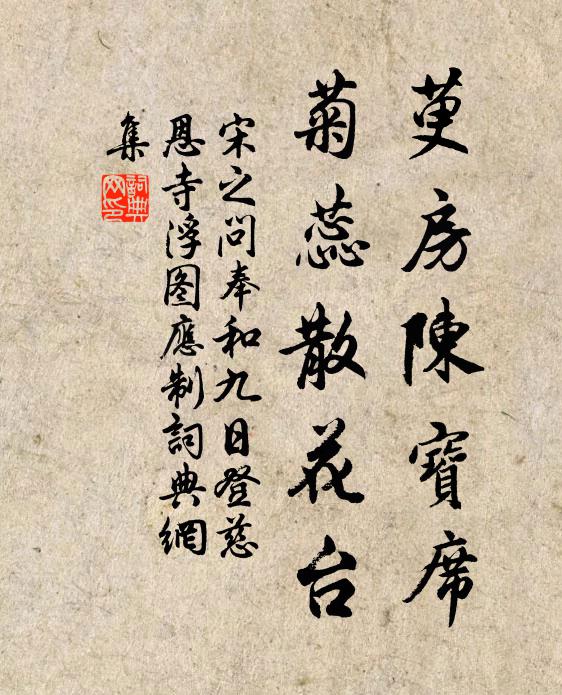 萸房陳寶席
菊蕊散花台
宋之問奉和九日登慈
恩寺浮图應制詞典網
集
詞典
网印